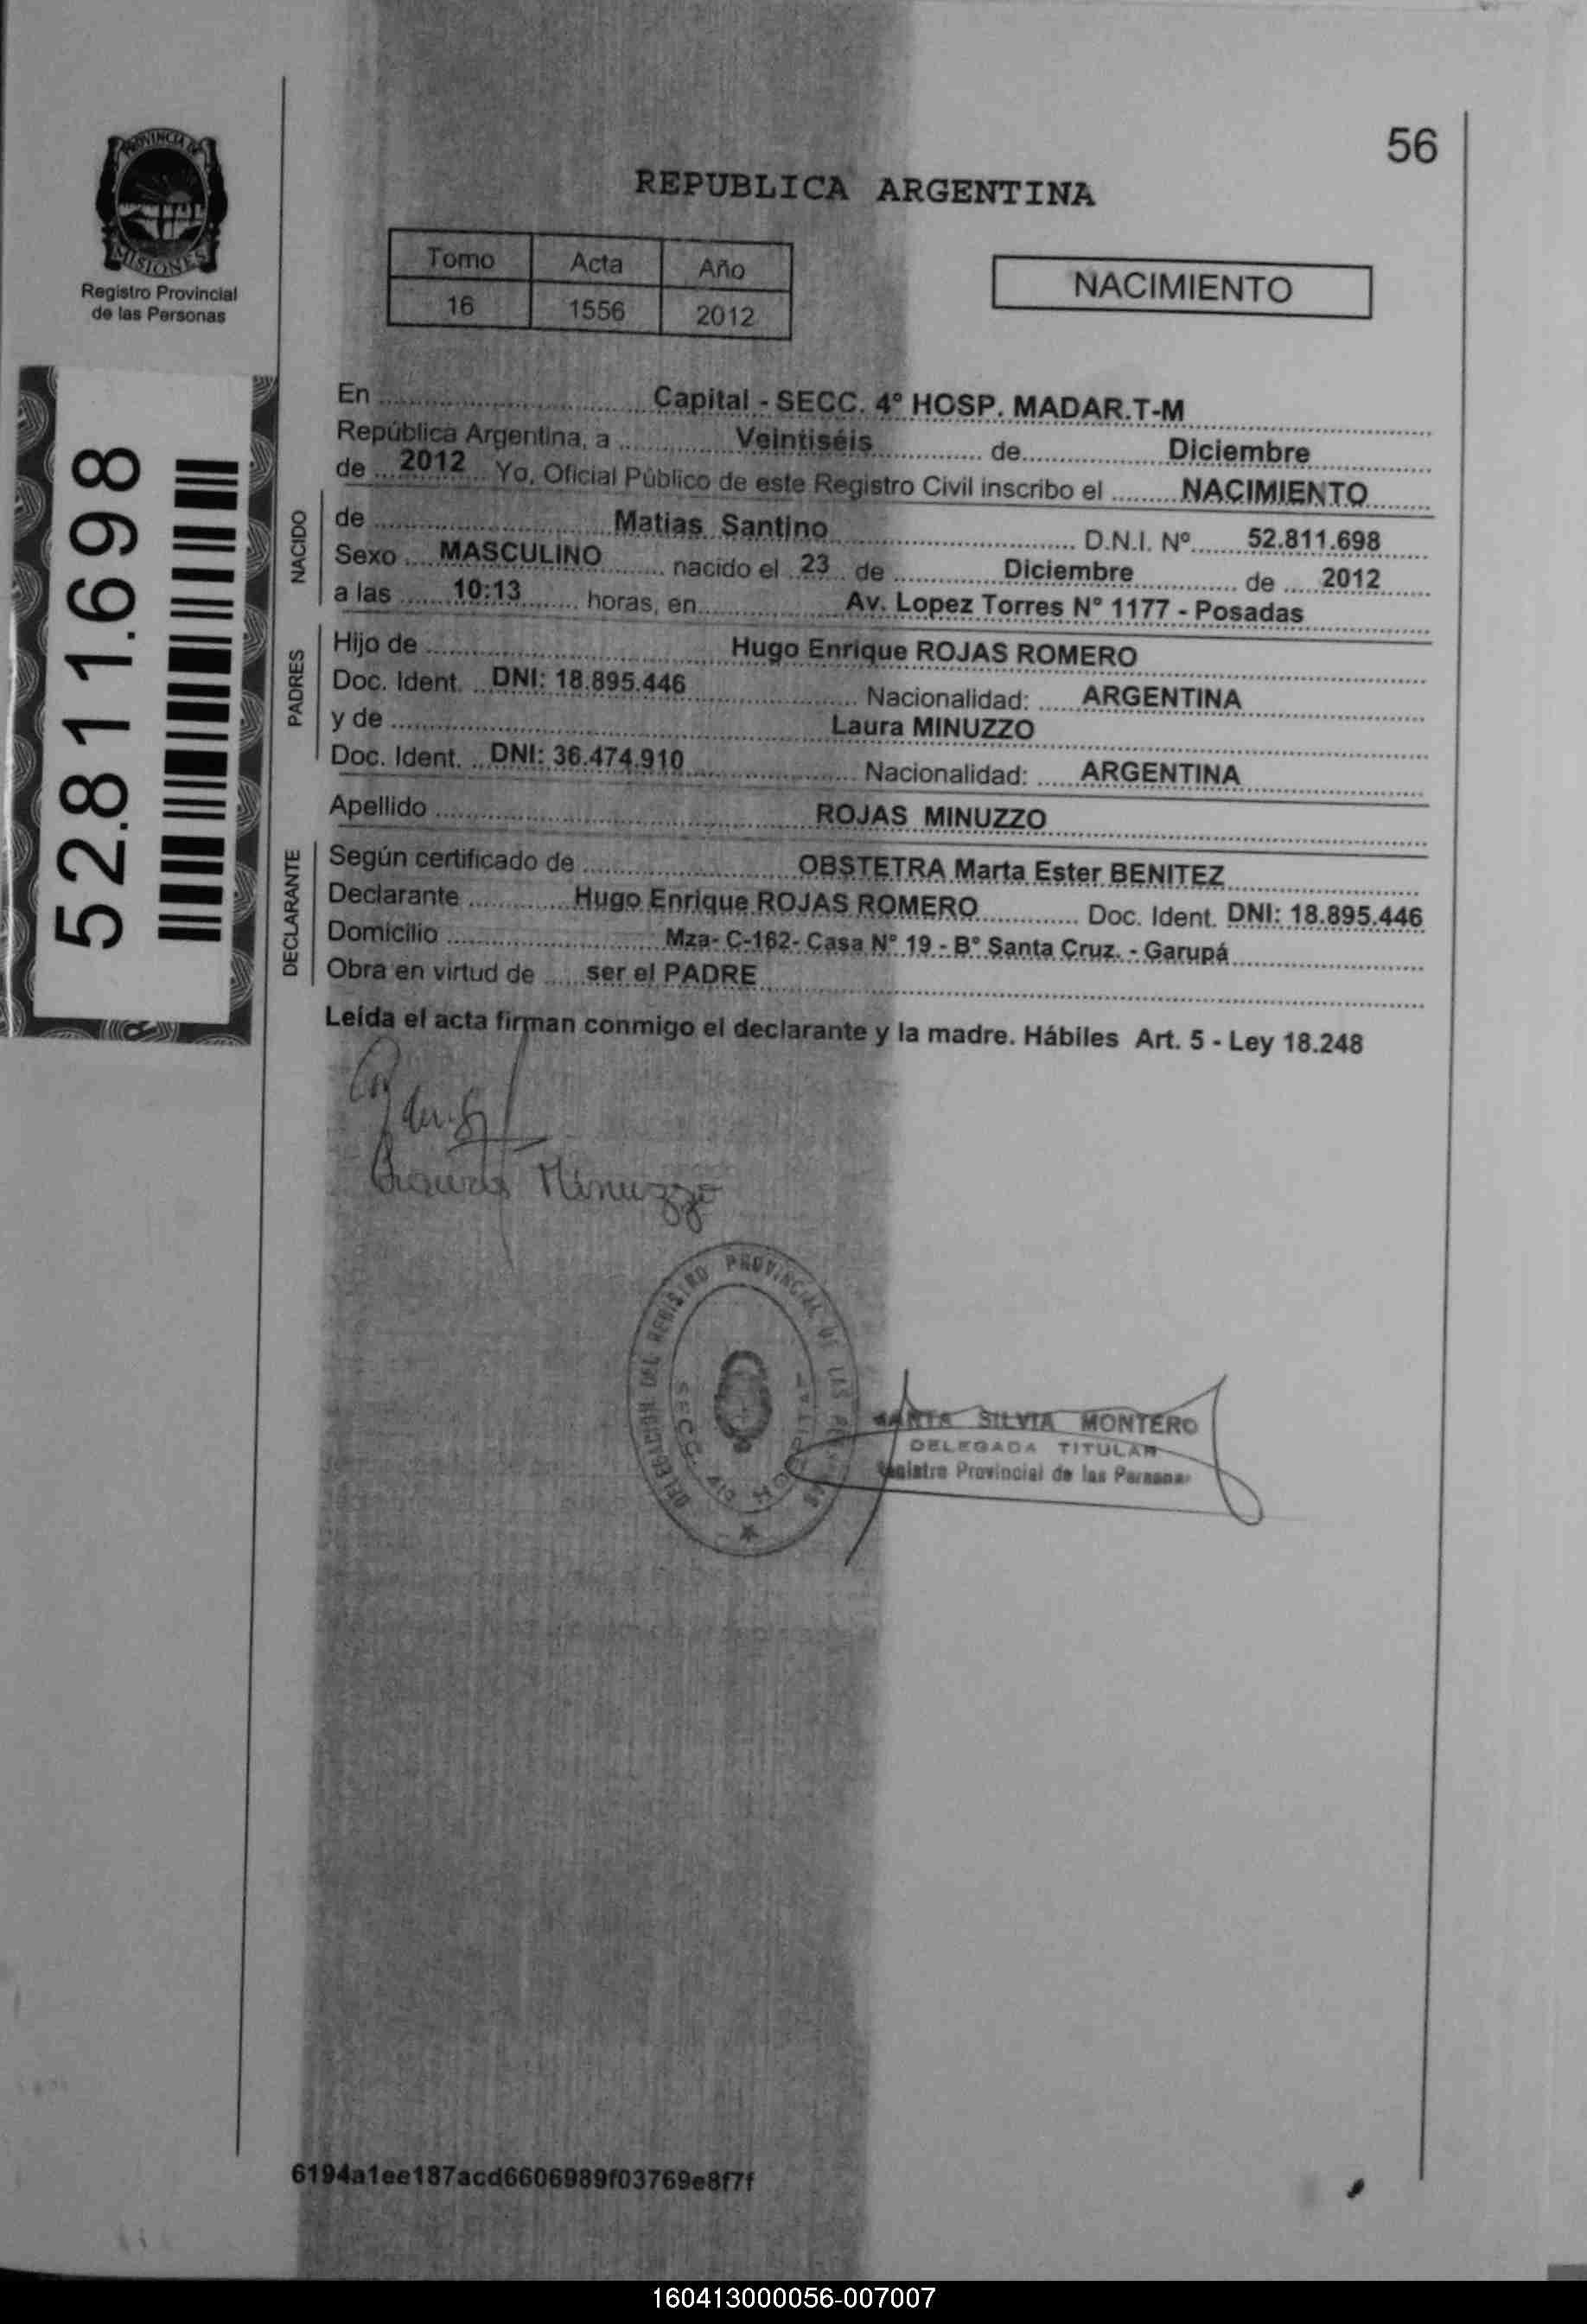 56
REPUBLICA ARGENTINA
PROVINCIA DE
MISIONES
Registro Provincial
de las Personas
Tomo Acta Año
16 1556 2012
NACIMIENTO
52.811.698
En ........ Capital - SECC. 4º HOSP. MADAR.T-M
República Argentina, a ........ Veintiséis ........ de ........ Diciembre
de ... 2012 ... Yo, Oficial Público de este Registro Civil inscribo el ........ NACIMIENTO
NACIDO
de ........ Matias Santino ........ D.N.I. Nº ........ 52.811.698
Sexo .... MASCULINO ........ nacido el .. 23 .. de ........ Diciembre ........ de .... 2012
a las ...... 10:13 ...... horas, en ........ Av. Lopez Torres Nº 1177 - Posadas
PADRES
Hijo de ........ Hugo Enrique ROJAS ROMERO
Doc. Ident. ... DNI: 18.895.446 ........ Nacionalidad: ..... ARGENTINA
y de ........ Laura MINUZZO
Doc. Ident. ... DNI: 36.474.910 ........ Nacionalidad: ..... ARGENTINA
Apellido ........ ROJAS MINUZZO
DECLARANTE
Según certificado de ........ OBSTETRA Marta Ester BENITEZ
Declarante ........ Hugo Enrique ROJAS ROMERO ........ Doc. Ident. DNI: 18.895.446
Domicilio ........ Mza- C-162- Casa Nº 19 - Bº Santa Cruz. - Garupá
Obra en virtud de ..... ser el PADRE
Leída el acta firman conmigo el declarante y la madre. Hábiles Art. 5 - Ley 18.248
Minuzzo
DELEGACION DEL REGISTRO PROVINCIAL DE LAS PERSONAS
SECC. 4ta
SILVIA MONTERO
DELEGADA TITULAR
Provincial de las Personas
6194a1ee187acd6606989f03769e8f7f
160413000056-007007